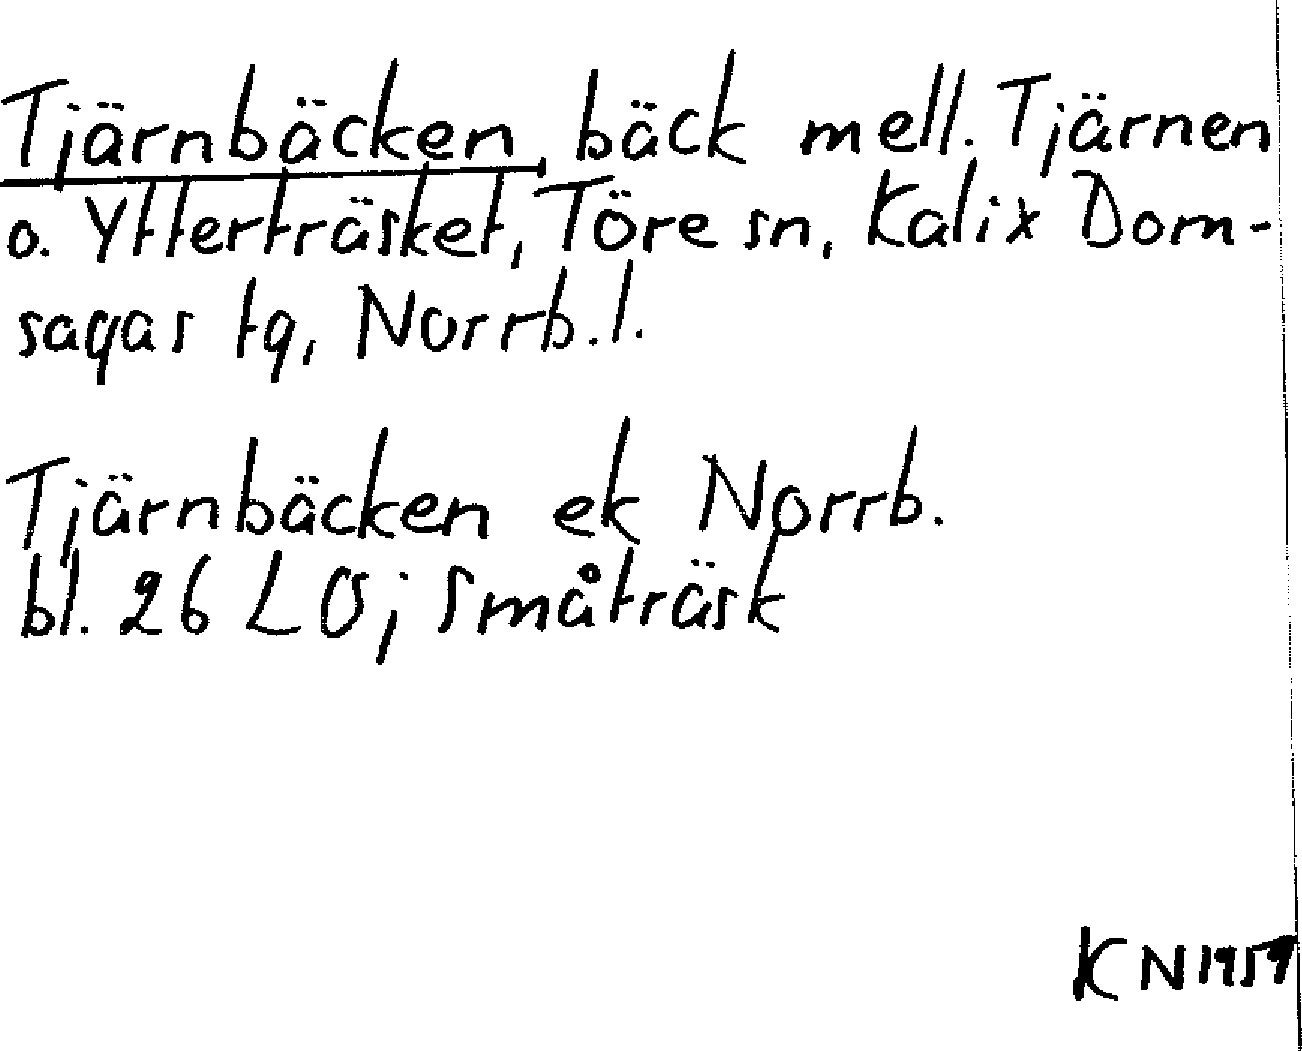 Tjärnbäcken, bäck mell. Tjärnen
o. Ytterträsket, Töre sn, Kalix Dom-
sagas tg, Norrb.l.
Tjärnbäcken ek Norrb.
bl. 26 LO; Småträsk
KN 1959